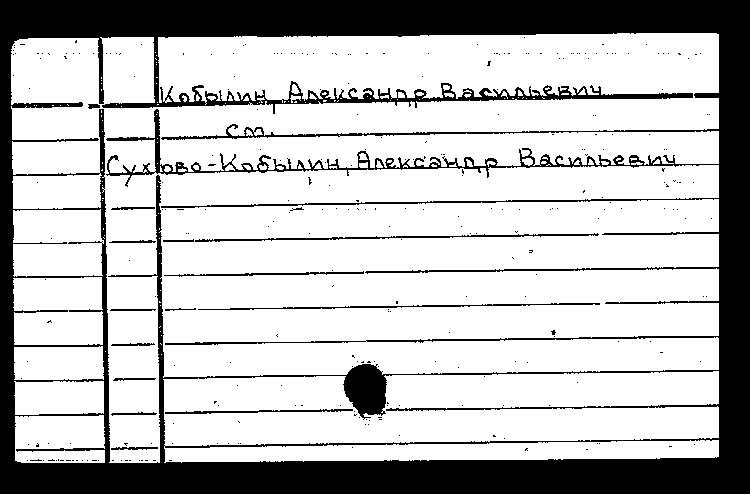 Кобылин, Александр Васильевич
см.
Сухово-Кобылин, Александр Васильевич